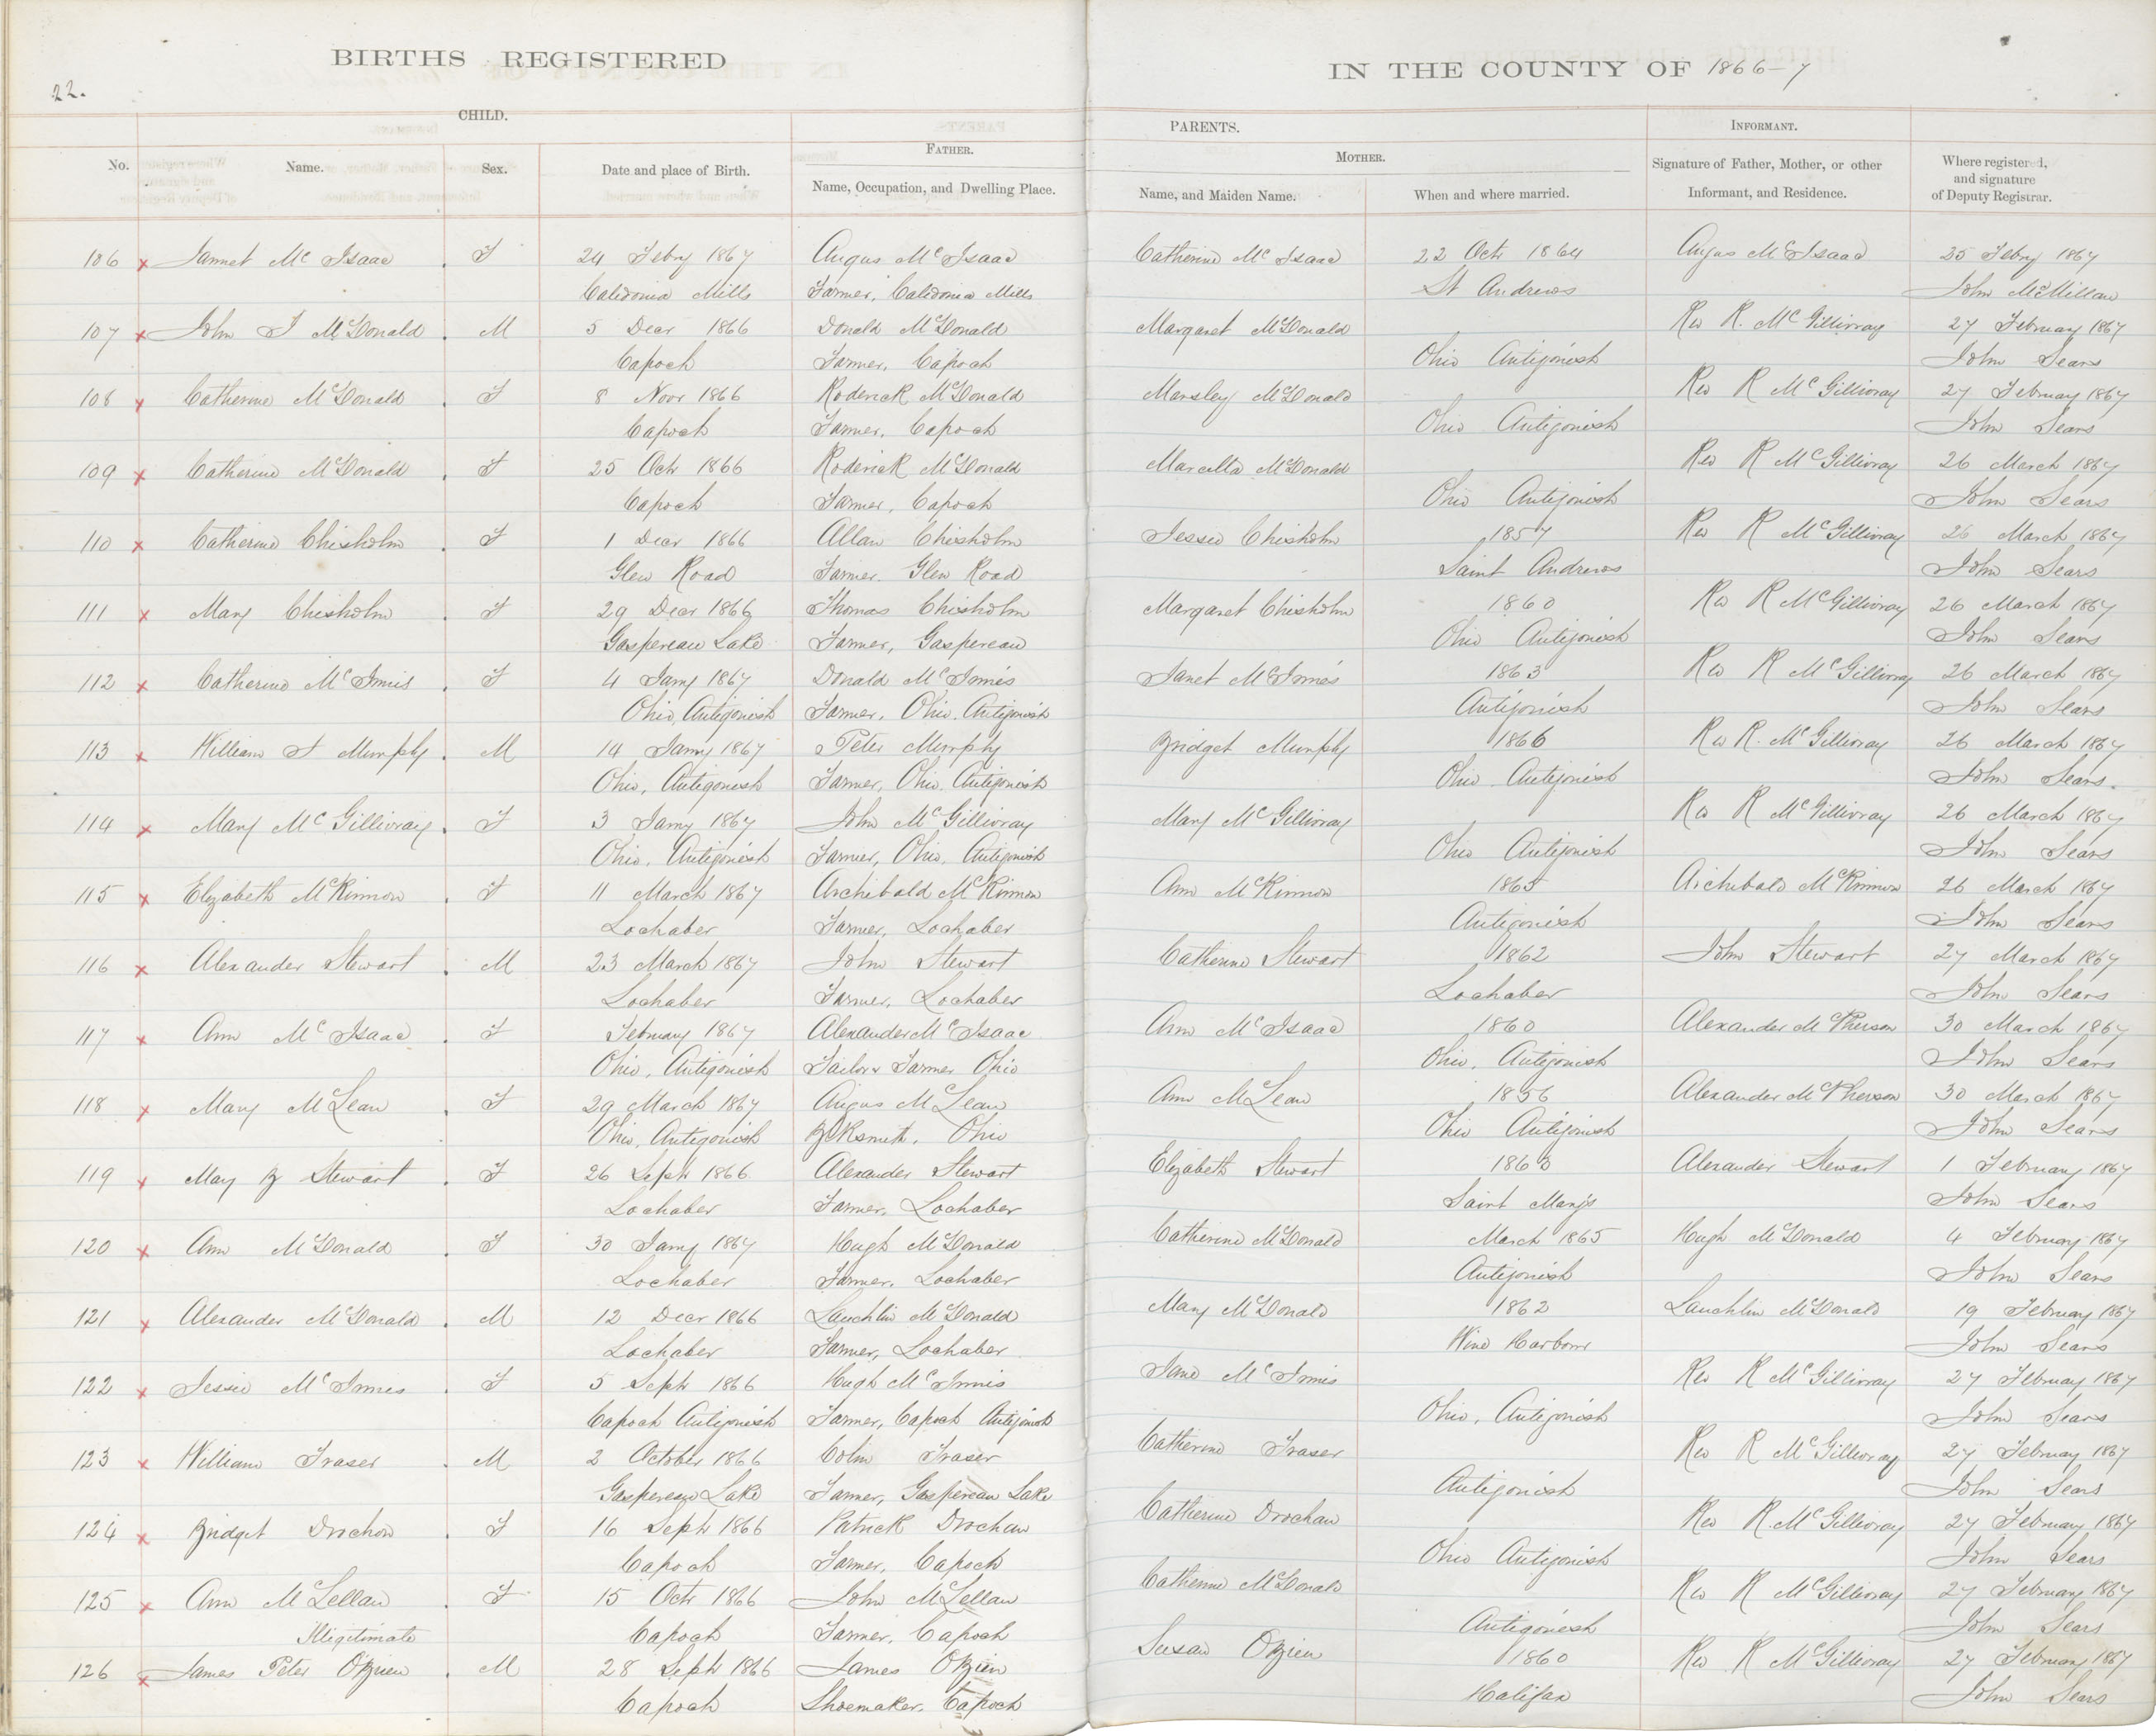 BIRTHS REGISTERED IN THE COUNTY OF 1866-7
22.
CHILD. PARENTS. INFORMANT.
FATHER. MOTHER.
No. Name. Sex. Date and place of Birth. Name, Occupation, and Dwelling Place. Name, and Maiden Name. When and where married. Signature of Father, Mother, or other Informant, and Residence. Where registered, and signature of Deputy Registrar.
106 x Jannet Mc Isaac . F 24 Febry 1867 Angus McIsaac Catherine McIsaac 22 Octr 1864 Angus McIsaac 25 Febry 1867
Caledonia Mills Farmer, Caledonia Mills St Andrews John McMillan
107 x John J McDonald . M 5 Decr 1866 Donald McDonald Margaret McDonald Rev R. McGillivray 27 February 1867
Capoch Farmer, Capoch Ohio Antigonish John Sears
108 x Catherine McDonald . F 8 Novr 1866 Roderick McDonald Marsley McDonald Rev R McGillivray 27 February 1867
Capoch Farmer, Capoch Ohio Antigonish John Sears
109 x Catherine McDonald . F 25 Octr 1866 Roderick McDonald Marcella McDonald Rev R McGillivray 26 March 1867
Capoch Farmer, Capoch Ohio Antigonish John Sears
110 x Catherine Chisholm . F 1 Decr 1866 Allan Chisholm Jessie Chisholm 1857 Rev R McGillivray 26 March 1867
Glen Road Farmer. Glen Road Saint Andrews John Sears
111 x Mary Chisholm . F 29 Decr 1866 Thomas Chisholm Margaret Chisholm 1860 Rev R McGillivray 26 March 1867
Gaspereau Lake Farmer, Gaspereau Ohio Antigonish John Sears
112 x Catherine McInnis . F 4 Jany 1867 Donald McInnis Janet McInnis 1863 Rev R McGillivray 26 March 1867
Ohio, Antigonish Farmer. Ohio. Antigonish Antigonish John Sears
113 x William Murphy . M 14 Jany 1867 Peter Murphy Bridget Murphy 1866 Rev R. McGillivray 26 March 1867
Ohio, Antigonish Farmer, Ohio. Antigonish Ohio Antigonish John Sears.
114 x Mary McGillivray . F 3 Jany 1867 John McGillivray Mary McGillivray Rev R McGillivray 26 March 1867
Ohio, Antigonish Farmer, Ohio, Antigonish Ohio Antigonish John Sears
115 x Elizabeth McKinnon . F 11 March 1867 Archibald McKinnon Ann McKinnon 1865 Archibald McKinnon 26 March 1867
Lochaber Farmer, Lochaber Antigonish John Sears
116 x Alexander Stewart . M 23 March 1867 John Stewart Catherine Stewart 1862 John Stewart 27 March 1867
Lochaber Farmer, Lochaber Lochaber John Sears
117 x Ann McIsaac . F February 1867 Alexander McIsaac Ann McIsaac 1860 Alexander McPherson 30 March 1867
Ohio, Antigonish Tailor & Farmer Ohio Ohio, Antigonish John Sears
118 x Mary McLean . F 29 March 1867 Angus McLean Ann McLean 1856 Alexander McPherson 30 March 1867
Ohio, Antigonish Blksmith. Ohio Ohio Antigonish John Sears
119 x May B Stewart . F 26 Septr 1866 Alexander Stewart Elizabeth Stewart 1863 Alexander Stewart 1 February 1867
Lochaber Farmer, Lochaber Saint Mary's John Sears
120 x Ann McDonald . F 30 Jany 1867 Hugh McDonald Catherine McDonald March 1865 Hugh McDonald 4 February 1867
Lochaber Farmer, Lochaber Antigonish John Sears
121 x Alexander McDonald . M 12 Decr 1866 Lauchlin McDonald Mary McDonald 1862 Lauchlin McDonald 19 February 1867
Lochaber Farmer, Lochaber Wine Harbour John Sears
122 x Jessie McInnis . F 5 Septr 1866 Hugh McInnis Jane McInnis Rev R McGillivray 27 February 1867
Capoch Antigonish Farmer, Capoch Antigonish Ohio, Antigonish John Sears
123 x William Fraser . M 2 October 1866 Colin Fraser Catherine Fraser Rev R McGillivray 27 February 1867
Gaspereau Lake Farmer, Gaspereau Lake Antigonish John Sears
124 x Bridget Drochon . F 16 Septr 1866 Patrick Drochan Catherine Drochan Rev R. McGillivray 27 February 1867
Capoch Farmer, Capoch Ohio Antigonish John Sears
125 x Ann McLellan . F 15 Octr 1866 John McLellan Catherine McDonald Rev R McGillivray 27 February 1867
Illigitimate Capoch Farmer, Capoch Antigonish John Sears
126 x James Peter OBrien . M 28 Septr 1866 James OBrien Susan OBrien 1860 Rev R McGillivray 27 February 1867
Capoch Shoemaker, Capoch Halifax John Sears